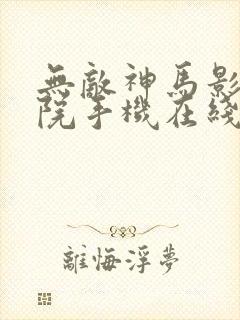 無敵神馬影
院手機在綫
離悔浮夢